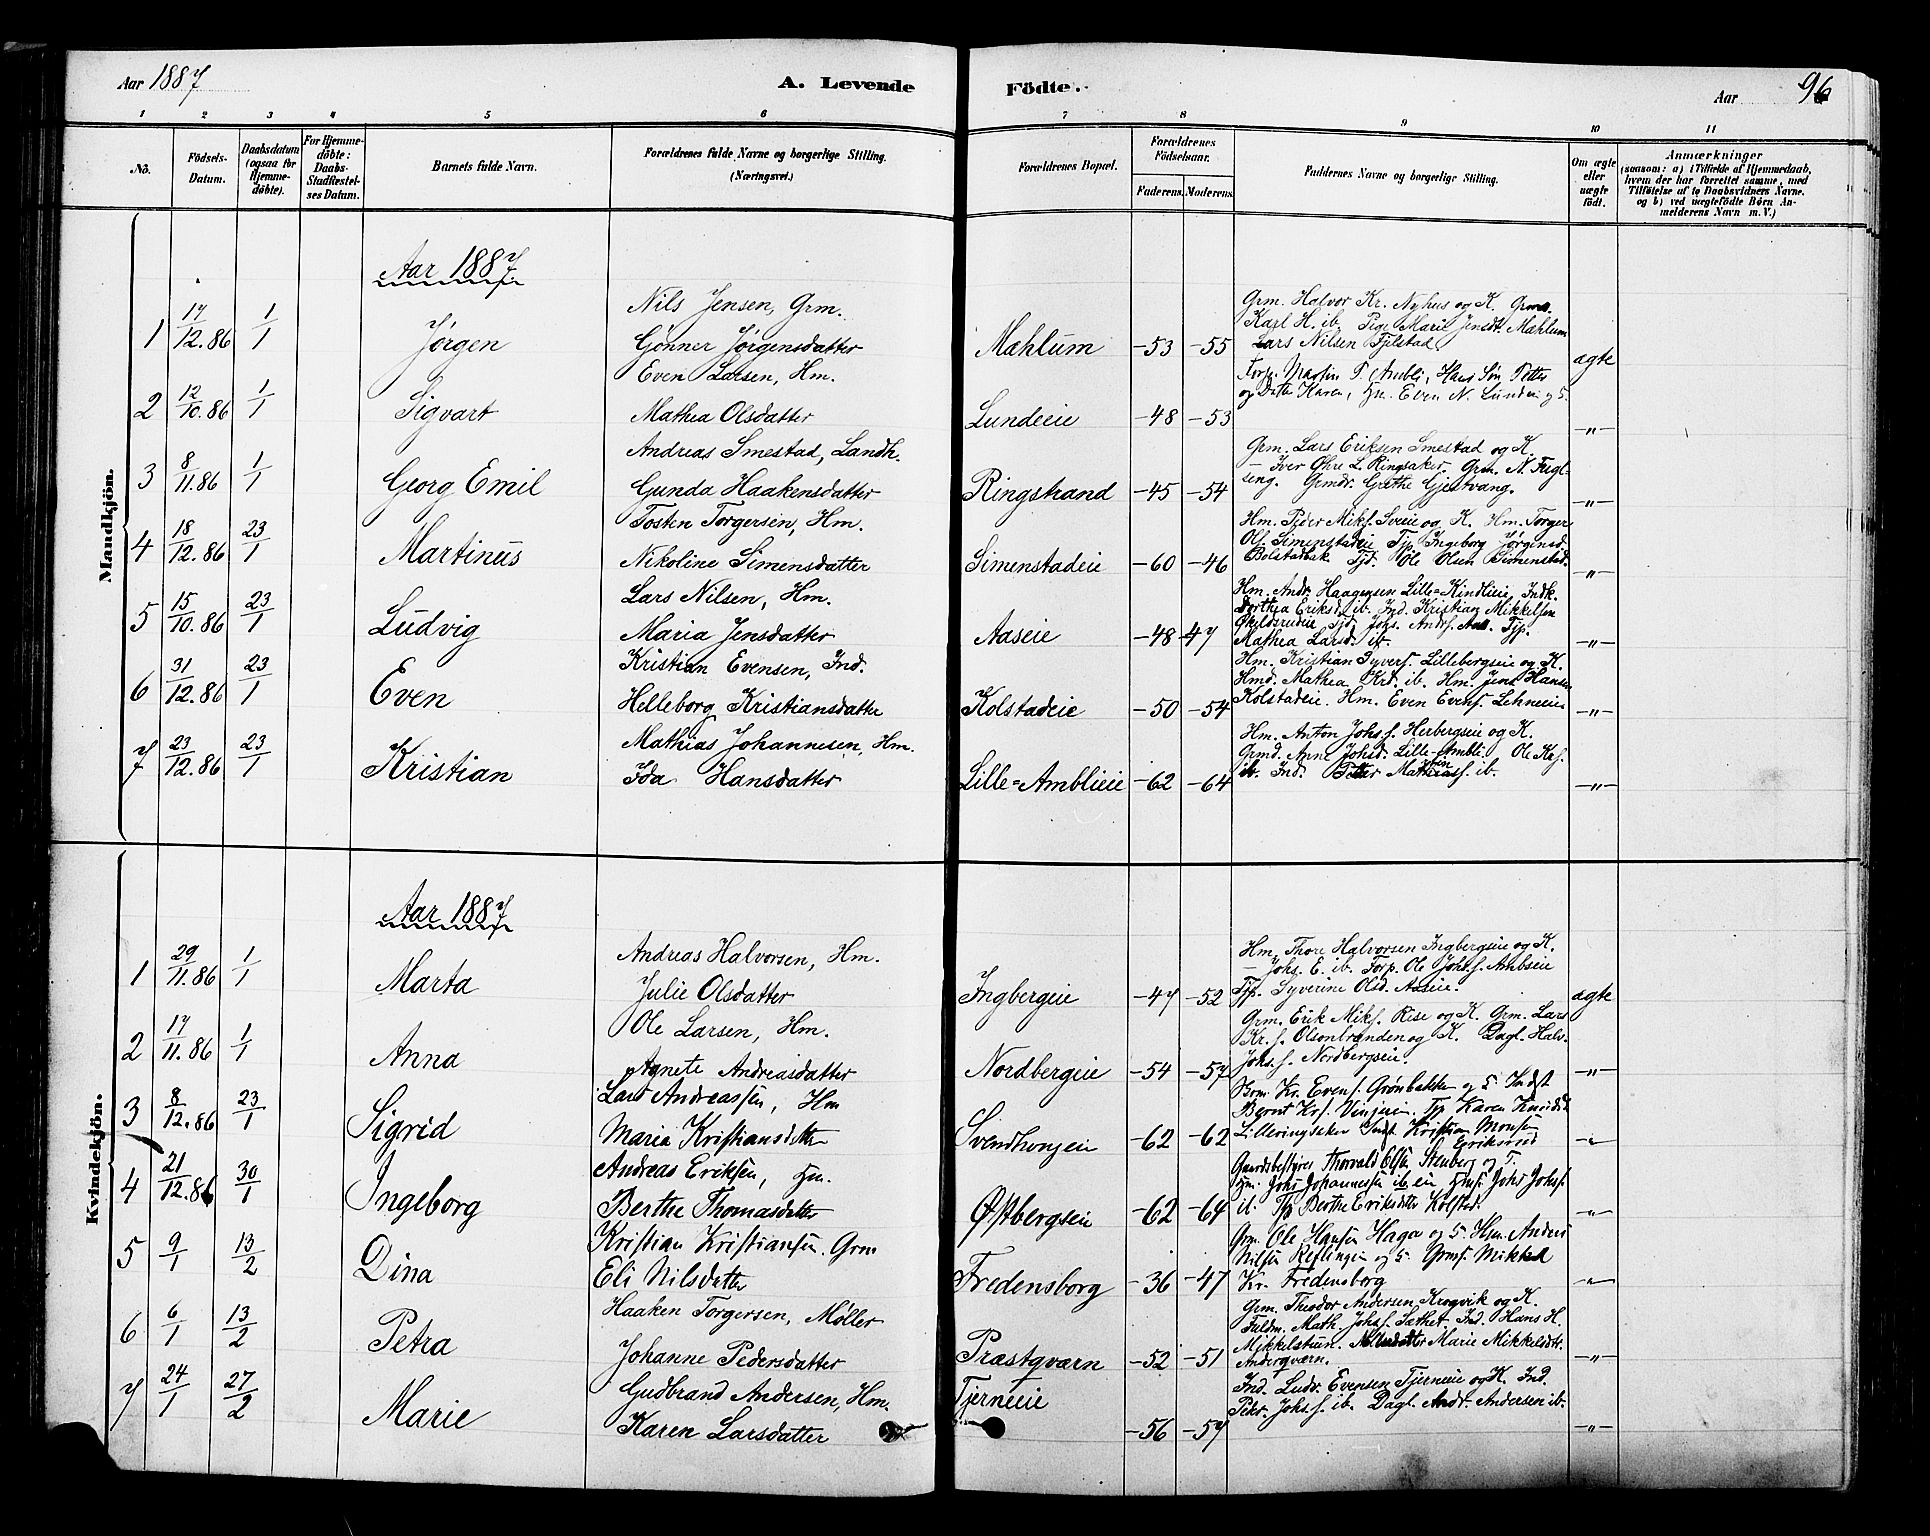 Aar 1887
A. Levende
Födte.
Aar
96
1 2 3 4 5 6 7 8 9 10 11
No.
Födsels-Datum.
Daabsdatum (ogsaa for Hjemme-döbte).
For Hjemme-döbte: Daabs-Stadfæstel-ses Datum.
Barnets fulde Navn.
Forældrenes fulde Navne og borgerlige Stilling.
(Næringsvei.)
Forældrenes Bopæl.
Forældrenes Födselsaar.
Faderens. Moderens.
Faddernes Navne og borgerlige Stilling.
Om ægte eller uægte födt.
Anmærkninger
(saasom: a) i Tilfælde af Hjemmedaab,
hvem der har forrettet samme, med
Tilföielse af to Daabsvidners Navne.
og b) ved uægtefödte Börn An-
melderens Navn m. V.)
Mandkjön.
Aar 1887.
1 17/12.86 1/1 Jørgen
Nils Jensen, Grm.
Gønner Jørgensdatter
Mæhlum -53 -55
Grm. Halvor Kr. Nyhus og K. Grm.
Karl H. ib. Pige Marie Jensdt. Mæhlum
Lars Nilsen Fjelstad
ægte
2 12/10.86 1/1 Sigvart
Even Larsen, Hm.
Mathea Olsdatter
Lundeie -48 -53
Forp. Martin P. Ambli, Hans Søn Petter
og Datter Karen, Hm. Even N. Lundeie
—"—
3 8/11.86 1/1 Georg Emil
Andreas Smestad, Landh.
Gunda Haakensdatter
Ringstrand -45 -54
Grm. Lars Eriksen Smestad og K.
— Iver Øhre L. Ringsaker. Grm. N. Fugl-
seng. Grmdr. Grethe Gjestvang.
—"—
4 18/12.86 23/1 Martinus
Tosten Torgersen, Hm.
Nikoline Simensdatter
Simenstadeie -60 -46
Hm. Peder Miks. Sveie og K. Hm. Torger
Ols. Simenstadeie Tjp. Ingeborg Jørgensd.
Bolstadbak Tjd. Ole Olsen Simenstad.
—"—
5 15/10.86 23/1 Ludvig
Lars Nilsen, Hm.
Maria Jensdatter
Aaseie -48 -47
Hm. Andr. Haagensen Lille-Kindlieie, Indk.
Dorthea Eriksd. ib. Ind. Kristian Mikkelsen
Økilsrudeie Tjd. Johs. Andrs. Aas. Tjp.
Mathea Larsd. ib.
—"—
6 31/12.86 23/1 Even
Kristian Evensen, Ind.
Helleborg Kristiansdatter
Kolstadeie -50 -54
Hm. Kristian Syvers. Lillebergseie og K.
Hmd. Mathea Krd. ib. Hm. Jens Hansen
Kolstadeie. Hm. Even Evens. Lehneeie
—"—
7 23/12.86 23/1 Kristian
Mathias Johannesen, Hm.
Ida Hansdatter
Lille-Amblieie -62 -64
Hm. Anton Johs.s. Herbergseie og K.
Grmd. Anne Johsd. Lille-Ambli. Ole Ks.
ib. Ind. Petter Mathiass. ib.
—"—
Kvindekjön.
Aar 1887.
1 29/11.86 1/1 Marta
Andreas Halvorsen, Hm.
Julie Olsdatter
Ingbergeie -47 -52
Hm. Thore Halvorsen Ingbergseie og K.
— Johs. E. ib. Forp. Ole Johs.s. Amb
Tjp. Syverine Olsd. Aaseie.
ægte
2 17/11.86 1/1 Anna
Ole Larsen, Hm.
Agnete Andreasdatter
Nordbergeie -54 -57
Grm. Erik Miks. Rise og K. Grm. Lars
Kr.s. Olsonbrænden og K. Dagl. Halv.
Johs.s. Nordbergseie.
—"—
3 8/12.86 23/1 Sigrid
Lars Andreassen, Hm
Maria Kristiansdatter
Svendhougen -62 -62
Brm. Kr. Evens. Grønbakken og H. Indst
Bernt Krs. Tjp Karen
Lilleringsaker Indst. Kristian Monsen
Eriksrud
—"—
4 21/12.86 30/1 Ingeborg
Andreas Eriksen, Hm.
Berthe Thomasdatter
Østbergseie -62 -64
Gaardsbestyrer Thorvald Olsen Stenberg og F.
Hm. Johs Johannessen ib. eie Hms. Johs Johs.
ib. Tjp Berthe Eriksdatter Kolstad.
—"—
5 9/1 13/2 Dina
Kristian Kristiansen. Grm
Eli Nilsdatter
Fredensborg -36 -47
Grm. Ole Hansen Haga og H. Hm. Anders
Nilsen Reslingen og H. Grms. Mikkel
Kr. Fredensborg
—"—
6 6/1 13/2 Petra
Haaken Torgersen, Møller
Johanne Pedersdatter
Præstqværn -52 -51
Grm. Theodor Andersen Krogvik og K.
Fuldm. Math. Johs.s. Sæthet. Ind. Hans H.
Mikkelstuen. Marie Mikkelsdt.
Anderqværn.
—"—
7 24/1 27/2 Marie
Gudbrand Andersen, Hm.
Karen Larsdatter
Tjerneie -56 -57
Ind. Ludv. Evensen Tjerneie og K. Ind.
Petr. Johs.s. ib. Dagl. Andr. Andersen ib.
—"—